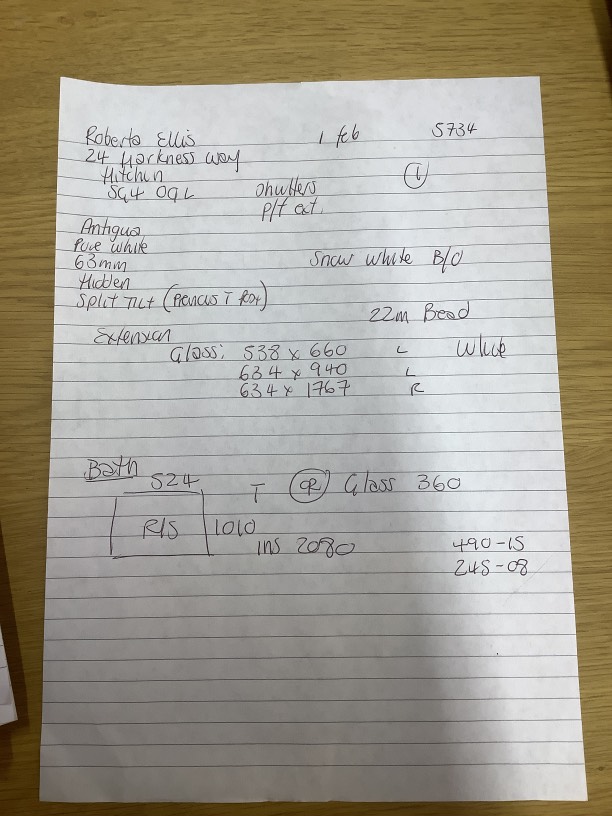 Roberta Ellis 1 feb 5734
24 Harkness way
Hitchin 1
SG4 0GL Shutters
P/f ext.
Antigua
Pure white
63mm Snow white B/O
Hidden
Split Tilt (Previous T Post)
22m Bead
Extension
Glass: 538 x 660 L White
634 x 940 L
634 x 1767 R
Bath
524 T OR Glass 360
R/S 1010
ins 2080 490-15
245-08